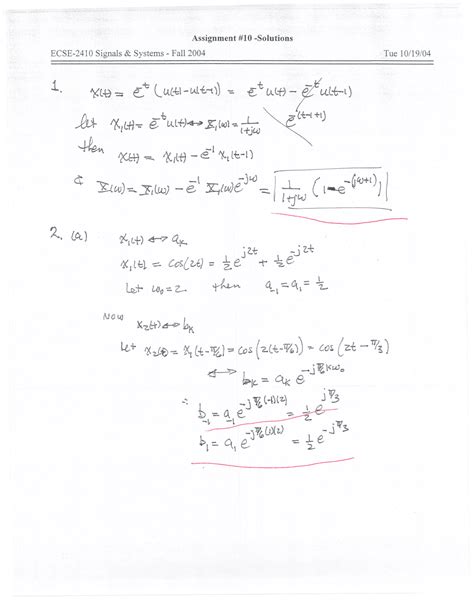 Assignment #10 -Solutions
ECSE-2410 Signals & Systems - Fall 2004 Tue 10/19/04
1. x(t) = e^{-t} (u(t)-u(t-1)) = e^{-t} u(t) - e^{-t} u(t-1)
e^{-(t-1+1)}
let x₁(t) = e^{-t} u(t) ↔ X₁(ω) = 1/(1+jω)
then x(t) = x₁(t) - e^{-1} x₁(t-1)
& X(ω) = X₁(ω) - e^{-1} X₁(ω) e^{-jω} = 1/(1+jω) (1-e^{-(jω+1)})
2. (a) x₁(t) ↔ aₖ
x₁(t) = cos(2t) = ½ e^{j2t} + ½ e^{-j2t}
Let ω₀=2. then a₋₁ = a₁ = ½
Now
x₂(t) ↔ bₖ
Let x₂(t) = x₁(t-π/6) = cos(2(t-π/6)) = cos(2t-π/3)
↔ bₖ = aₖ e^{-jπ/6 kω₀}
∴ b₋₁ = a₋₁ e^{-jπ/6(-1)(2)} = ½ e^{jπ/3}
b₁ = a₁ e^{-jπ/6(1)(2)} = ½ e^{-jπ/3}